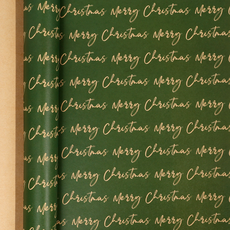 Merry Christmas Merry Christmas
Christmas Merry Christmas Merry
Merry Christmas Merry Christmas
Christmas Merry Christmas Merry
Merry Christmas Merry Christmas
Christmas Merry Christmas Merry
Merry Christmas Merry Christmas
Christmas Merry Christmas Merry
Merry Christmas Merry Christmas
Christmas Merry Christmas Merry